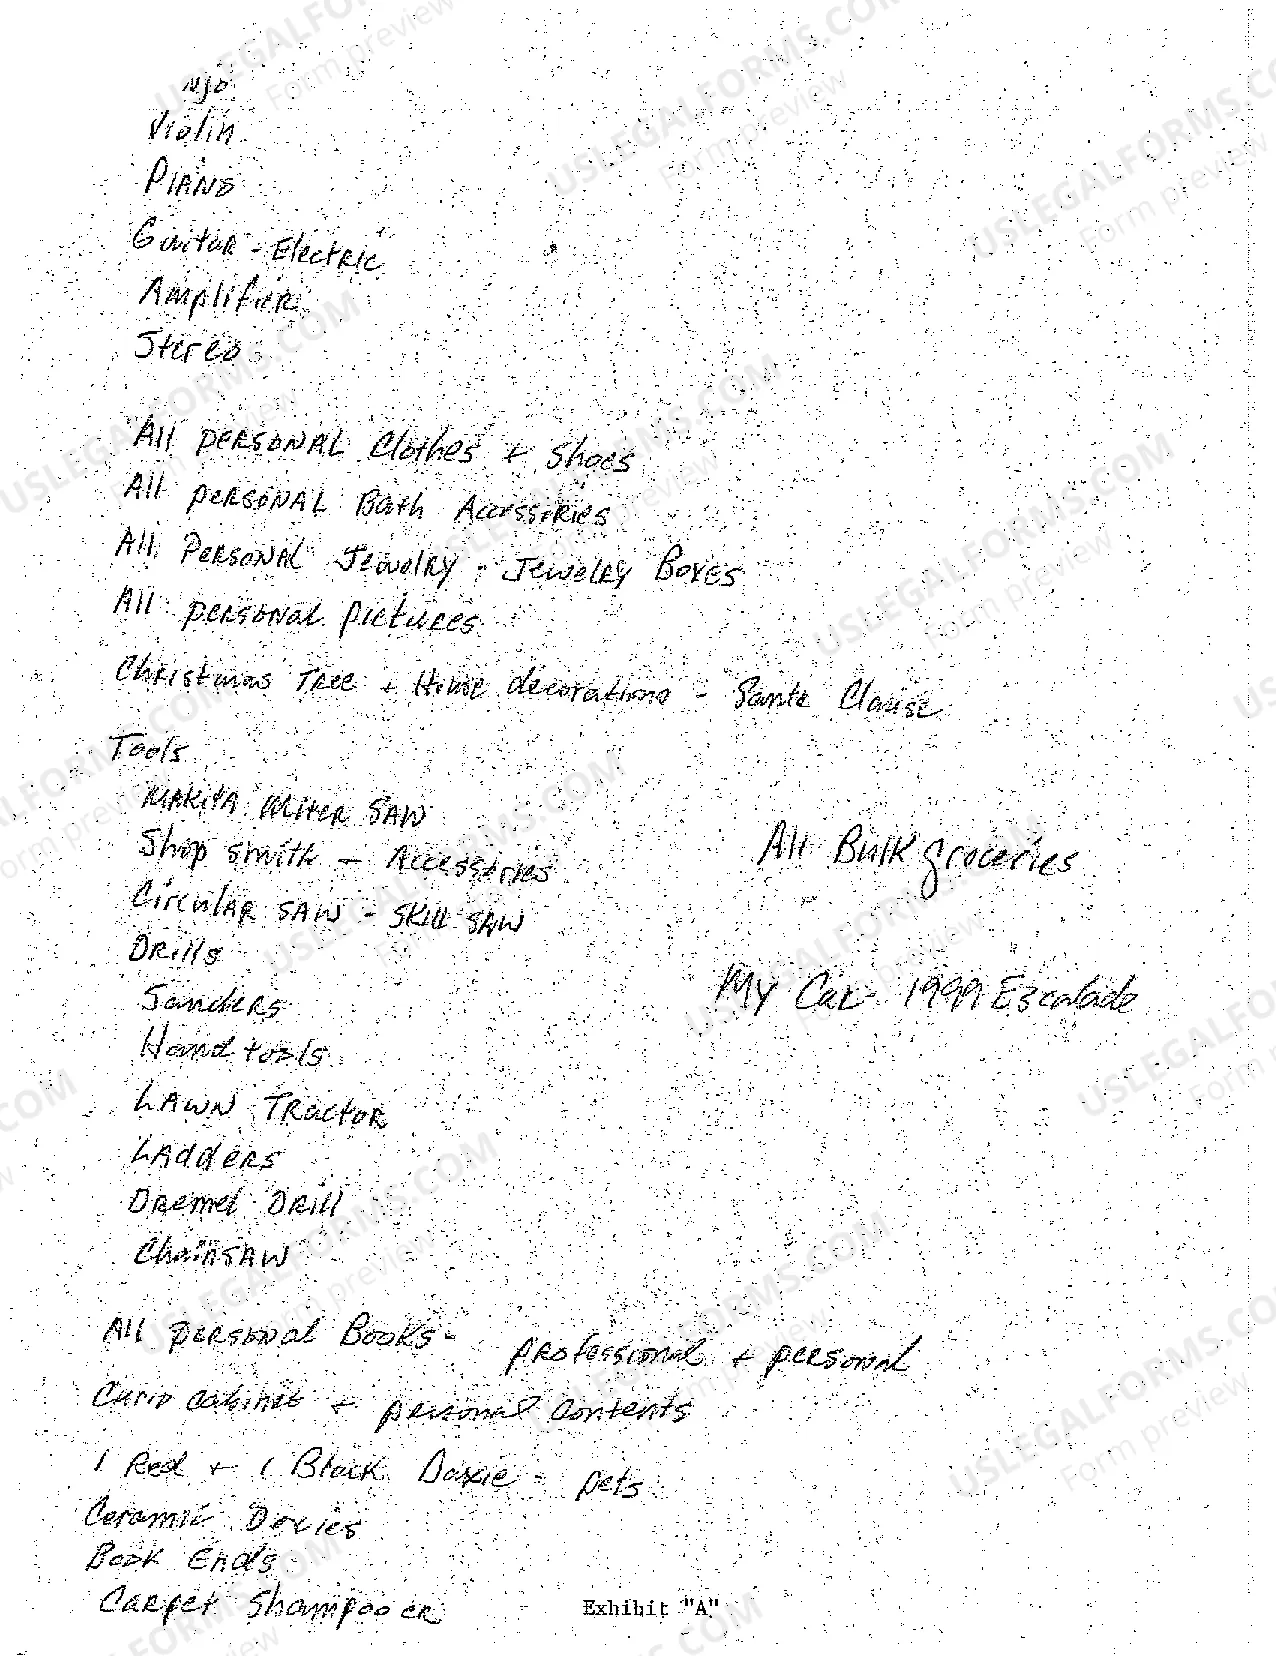 njo
Violin
Piano
Guitar - Electric
Amplifier
Stereo
All personal Clothes + Shoes
All personal Bath Accessories
All Personal Jewelry - Jewelry Boxes
All personal pictures
Christmas Tree + Home decorations - Santa Clause
Tools
Makita Miter Saw
Shop smith - Accessories
All Bulk groceries
Circular Saw - Skill Saw
Drills
Sanders
My Car 1999 Escalade
Hand tools
Lawn Tractor
Ladders
Dremel Drill
Chainsaw
All personal Books - professional + personal
Curio cabinet + personal Contents
1 Red + 1 Black Doxie - pets
Ceramic Doxies
Book Ends
Carpet Shampooer
Exhibit "A"
USLEGALFORMS.COM
Form preview